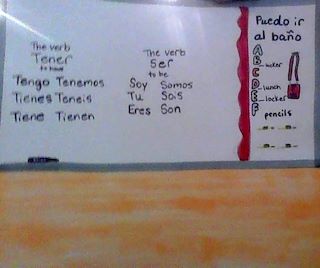 The verb
Tener
to have
Tengo Tenemos
Tienes Teneis
Tiene Tienen
The verb
Ser
to be
Soy Somos
Tu Sois
Eres Son
Puedo ir
al baño
A
B
C
D lunch
E locker
F pencils